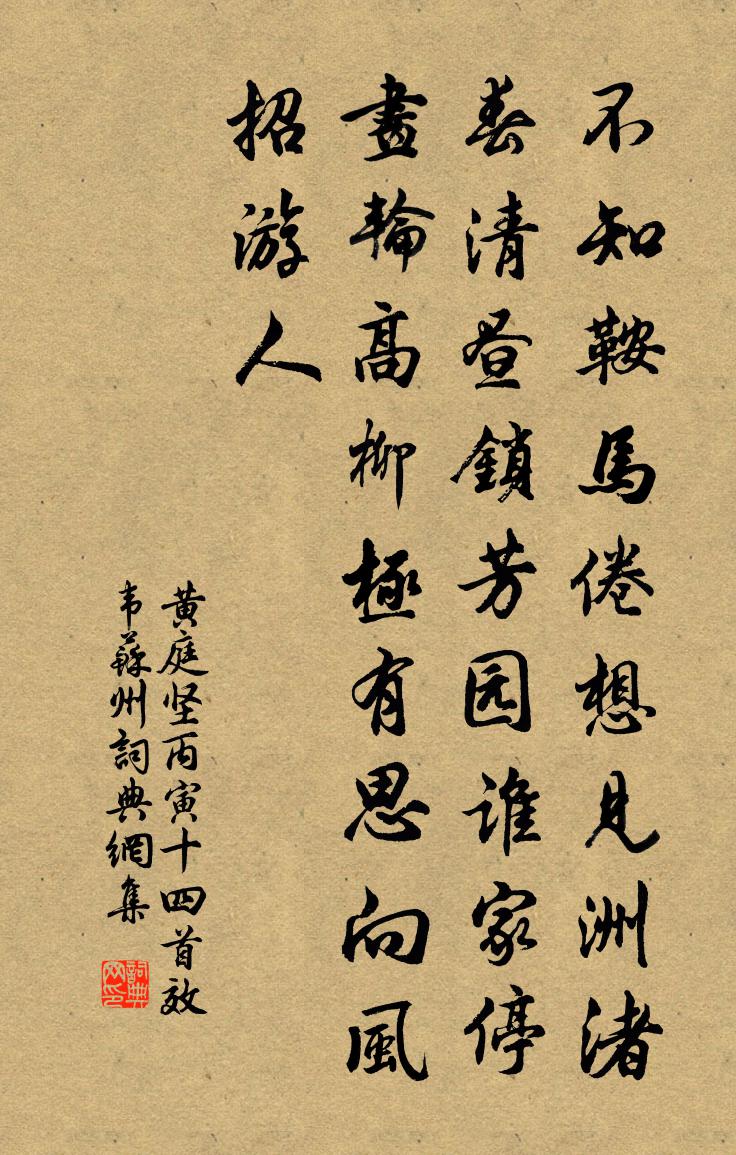 不知鞍馬倦想見洲渚
春清昼鎖芳园谁家停
畫輪高柳極有思向風
招游人
黄庭坚丙寅十四首效
韦蘇州詞典網集
詞典
网印